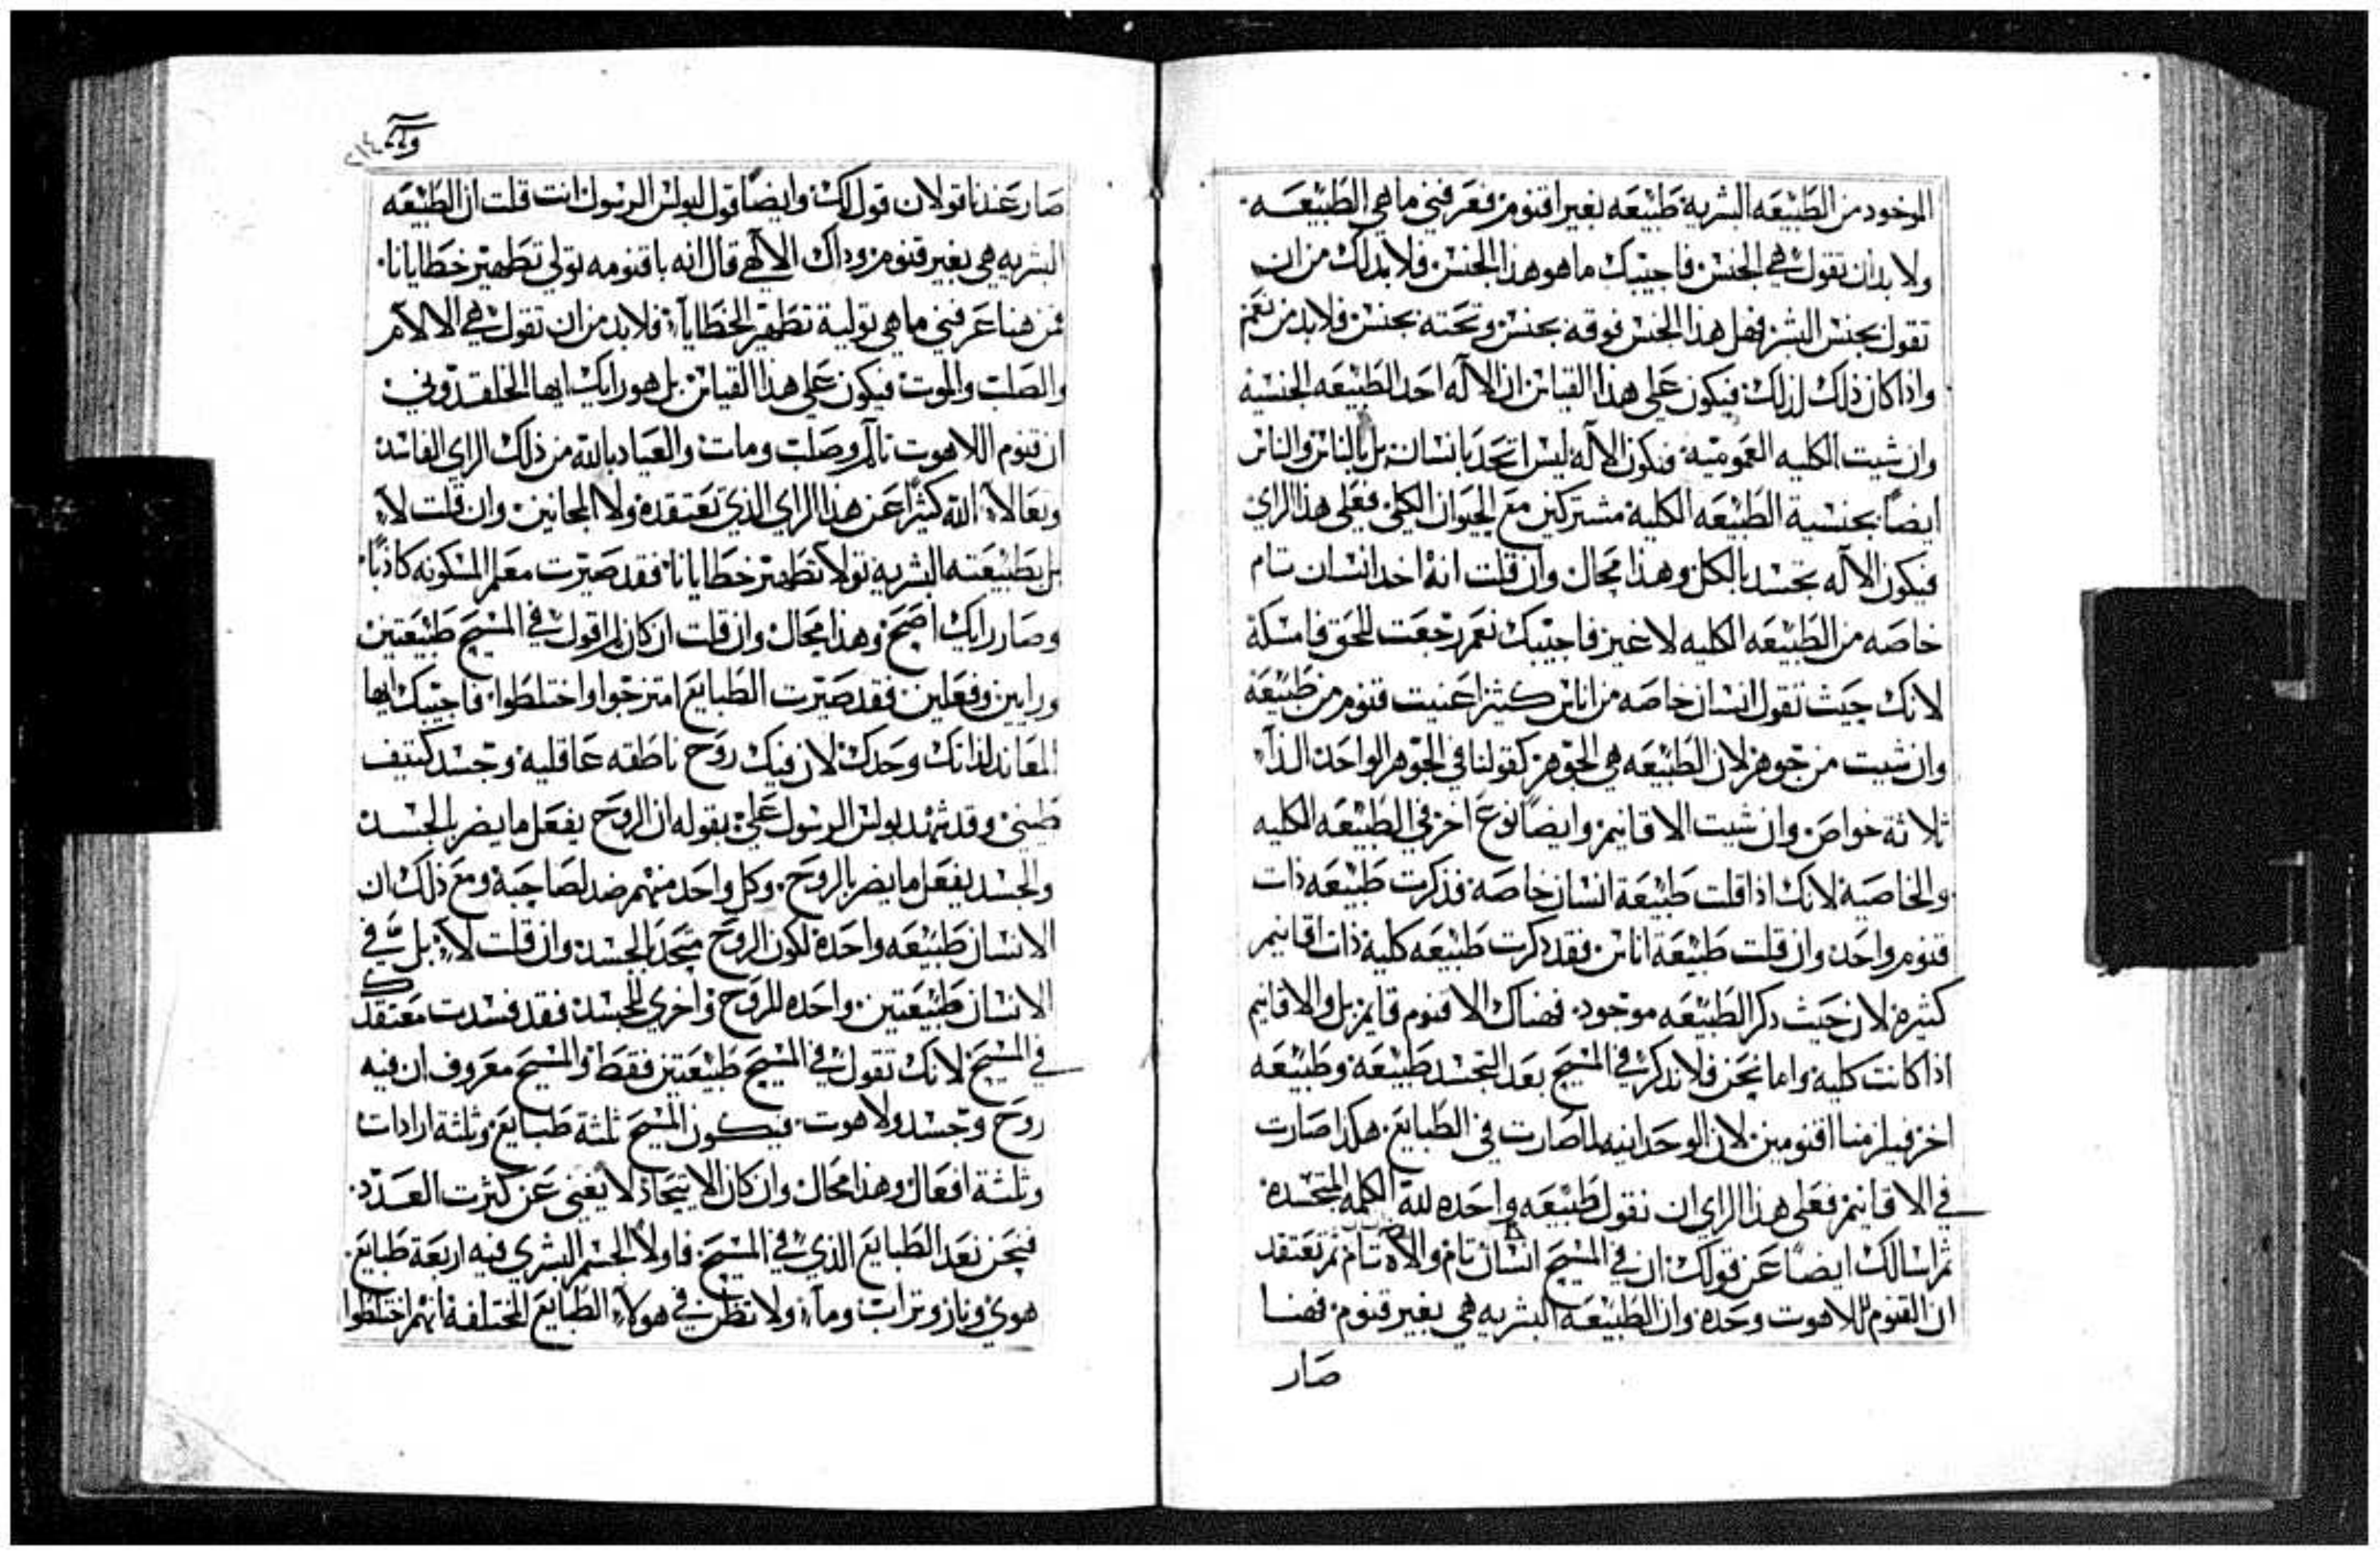 الموخود من الطبيعه البشريه طبيعه بغير اقنوم فعرفني ما هي الطبيعـه.
ولا بد ان تقول هي الجنس فاجيبك ما هو هذا الجنس فلا بد لك من ان
تقول بجنس البشر فهل هذا الجنس فوقه بجنس وتحته بجنس فلا بد من نعم
واذا كان ذلك لذلك فيكون على هذا القياس ان الاله احد الطبيعه الجنسيه
وان شيت الكليه العموميه فيكون الاله ليس اتحد بانسان بل بالناس والناس
ايضاً بجنسية الطبيعه الكليه مشتركين مع الحيوان الكلي فعلى هذا الراي
فيكون الاله تجسد بالكل وهذا محال وان قلت انه اخد انسان تام
خاصه من الطبيعه الكليه لا غير فاجيبك نعم رجعت للحق فامسكه
لانك حيث تقول انسان خاصه من اناس كثير اعنيت قنوم من طبيعه
وان شيت من جوهر لان الطبيعه هي الجوهر كقولنا في الجوهر الواحد الذآ
ثلاثة خواص وان شيت الاقانيم وايضاً نوع اخر في الطبيعه الكليه
والخاصيه لانك اذا قلت طبيعة انسان خاصه فذكرت طبيعه ذات
قنوم واحد وان قلت طبيعة اناس فقد ذكرت طبيعه كليه ذات اقانيم
كثيره لان حيث ذكر الطبيعه موجود. فهناك الاقنوم قايم بل والاقانيم
اذا كانت كليه واما نحن فلا نذكر في المسيح بعد التجسد طبيعه وطبيعه
اخر فيلزمنا اقنومين لان الوحدانيه لما صارت في الطبايع. هكذا صارت
في الاقانيم فعلى هذا الراي ان نقول طبيعه واحده لله الكلمه المتجسده
ثم اسالك ايضاً عن قولك ان في المسيح انسان تام والاه تام ثم تعتقد
ان القنوم للاهوت وحده وان الطبيعـه البشريه هي بغير قنوم فهنـا
صار
٢١٤
صار عندنا قولان قول لك وايضاً قول لبولس الرسول انت قلت ان الطبيعه
البشريه هي بغير قنوم وداك الالهي قال انه باقنومه تولي تطهير خطايانا.
فمن هنا عرفني ما هي تولية تطهير الخطايآ. فلا بد من ان تقول هي الالام
والصلب والموت فيكون على هذا القياس بل هو رايك ايها الخلقدوني
ان قنوم اللاهوت تالم وصلب ومات والعياد بالله من ذلك الراي الفاسد
وتعالا الله كثيراً عن هذا الراي الذي تعتقده ولا المجانين وان قلت لا
بل بطبيعته البشريه تولا تطهير خطايانا فقد صيرت معلم المسكونه كاذباً.
وصار رايك اصح وهذا محال وان قلت ان كان لم اقول في المسيح طبيعتين
ورايين وفعلين فقد صيرت الطبايع امتزجوا واختلطوا. فاجيبك ايها
المعاند لذاتك وحدك لان فيك روح ناطقه عاقليه وجسد كتيف
طيني وقد شهد بولس الرسول علي بقوله ان الروح يفعل ما يضر بالجسد
والجسد يفعل ما يضر بالروح. وكل واحد منهم ضد لصاحبه ومع ذلك ان
الانسان طبيعه واحده لكون الروح متحد بالجسد وان قلت لا بل في
الانسان طبيعتين واحده للروح واخري للجسد فقد فسدت معتقدك
في المسيح لانك تقول في المسيح طبيعتين فقط والمسيح معروف ان فيه
روح وجسد ولاهوت. فيكون المسيح ثلثة طبايع وثلثة ارادات
وثلثة افعال وهذا محال وان كان الاتحاد لا يغني عن كثرت العـدد.
فنحن نعد الطبايع الذي في المسيح. فاولاً الجسم البشري فيه اربعة طبايع.
هوي ونار وتراب ومآ ولا تظن في هولآ الطبايع المختلفه انهم اختلطوا